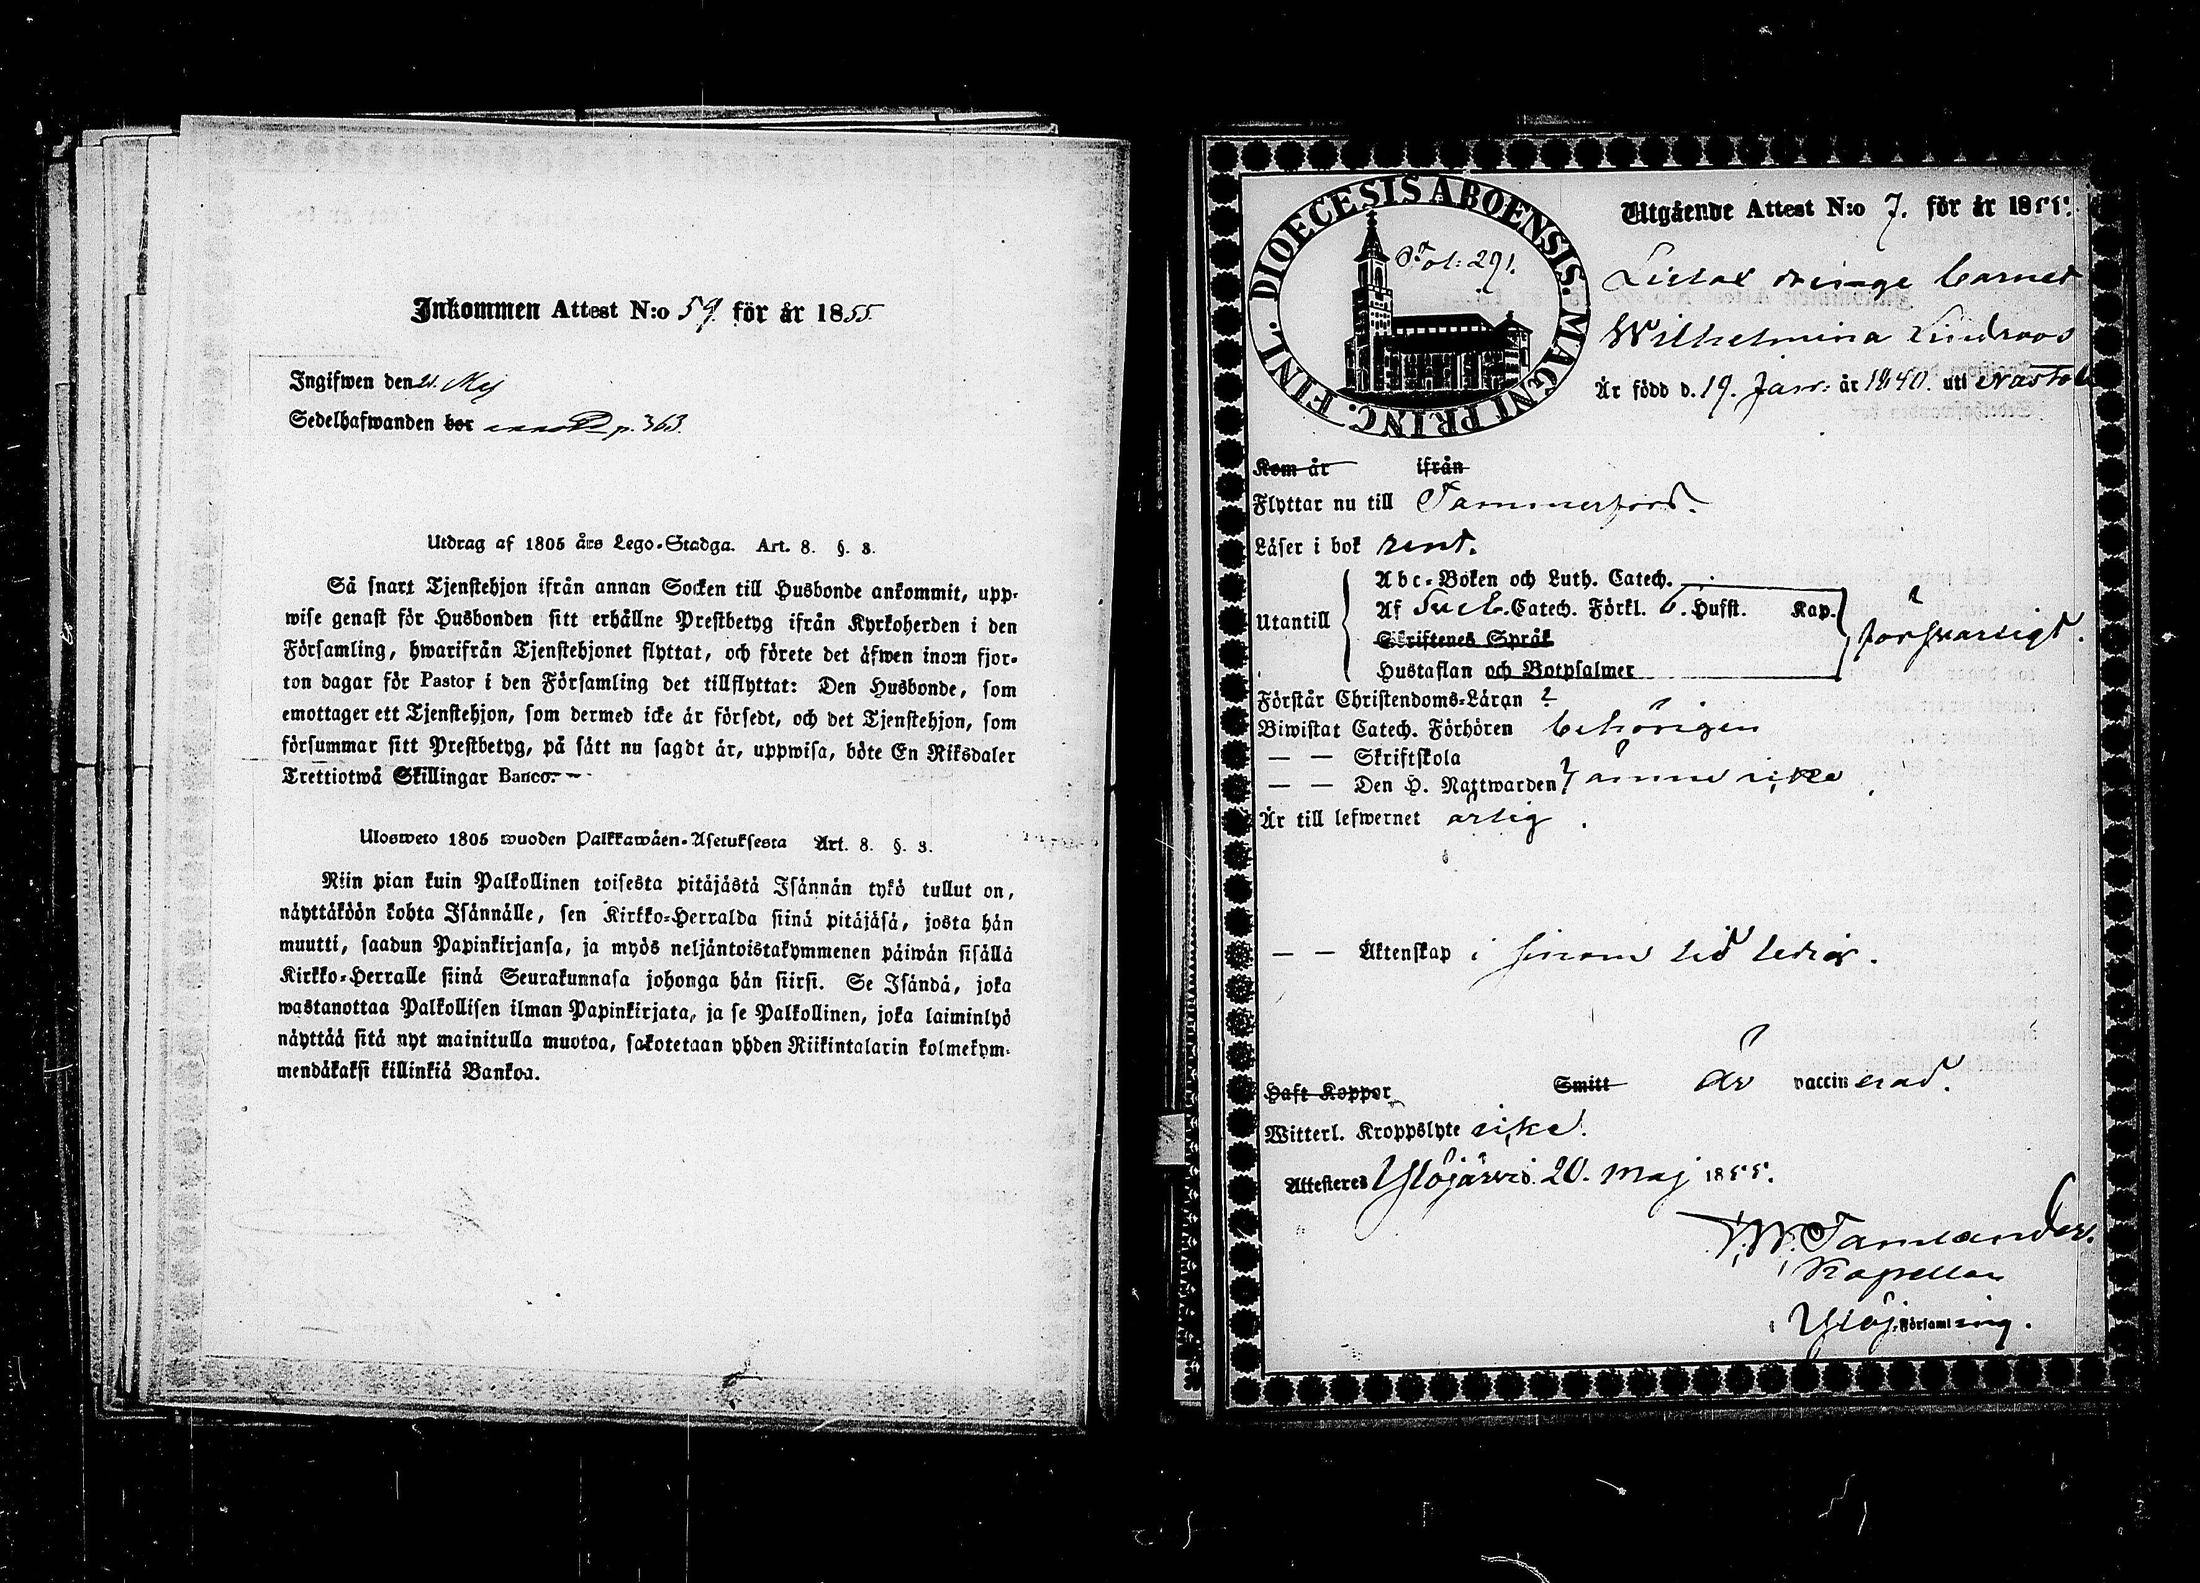 Inkommen Attest N:o 59. för år 1855
Ingifwen den 21. Maj
Sedelhafwanden bor p. 363.
Utdrag af 1805 års Lego-Stadga. Art. 8. §. 3.
Så snart Tjenstehjon ifrån annan Socken till Husbonde ankommit, upp-
wise genast för Husbonden sitt erhållne Prestbetyg ifrån Kyrkoherden i den
Församling, hwarifrån Tjenstehjonet flyttat, och förete det äfwen inom fjor-
ton dagar för Pastor i den Församling det tillflyttat: Den Husbonde, som
emottager ett Tjenstehjon, som dermed icke är försedt, och det Tjenstehjon, som
försummar sitt Prestbetyg, på sätt nu sagdt är, uppwisa, böte En Riksdaler
Trettiotwå Skillingar Banco.
Ulosweto 1805 wuoden Palkkawäen-Asetuksesta Art. 8. §. 3.
Niin pian kuin Palkollinen toisesta pitäjästä Isännän tykö tullut on,
näyttäköön kohta Isännälle, sen Kirkko-Herralda siinä pitäjäsä, josta hän
muutti, saadun Papinkirjansa, ja myös neljäntoistakymmenen päiwän sisällä
Kirkko-Herralle siinä Seurakunnasa johonga hän siirsi. Se Isändä, joka
wastanottaa Palkollisen ilman Papinkirjata, ja se Palkollinen, joka laiminlyö
näyttää sitä nyt mainitulla muotoa, sakotetaan yhden Riikintalarin kolmekym-
mendäkaksi killinkiä Bankoa.
DIOECESIS ABOENSIS. MAGNI PRINC. FINL.
Fol: 291.
Utgående Attest N:o 7. för år 1855.
Barnet
Wilhelmina Lindroos
Är född d. 19. Janr: år 1840. uti
Kom år ifrån
Flyttar nu till Tammerfors.
Läser i bok rent.
Utantill
Abc-Boken och Luth. Catech.
Af Sveb. Catech. Förkl. 6. Hufst. Kap.
Skriftenes Språk
Hustaflan och Botpsalmer
försvarligt.
Förstår Christendoms-Läran
Biwistat Catech. Förhören behörigen
— — Skriftskola
— — Den H. Nattwarden ännu icke
Är till lefwernet ärlig.
— — Äktenskap i sinom tid ledig.
Haft Koppor Smitt är vaccinerad.
Witterl. Kroppslyte icke.
Attesteres Ylöjärvi d. 20. Maj 1855.
Tamlander.
Kapellan
i Ylöj. Församling.